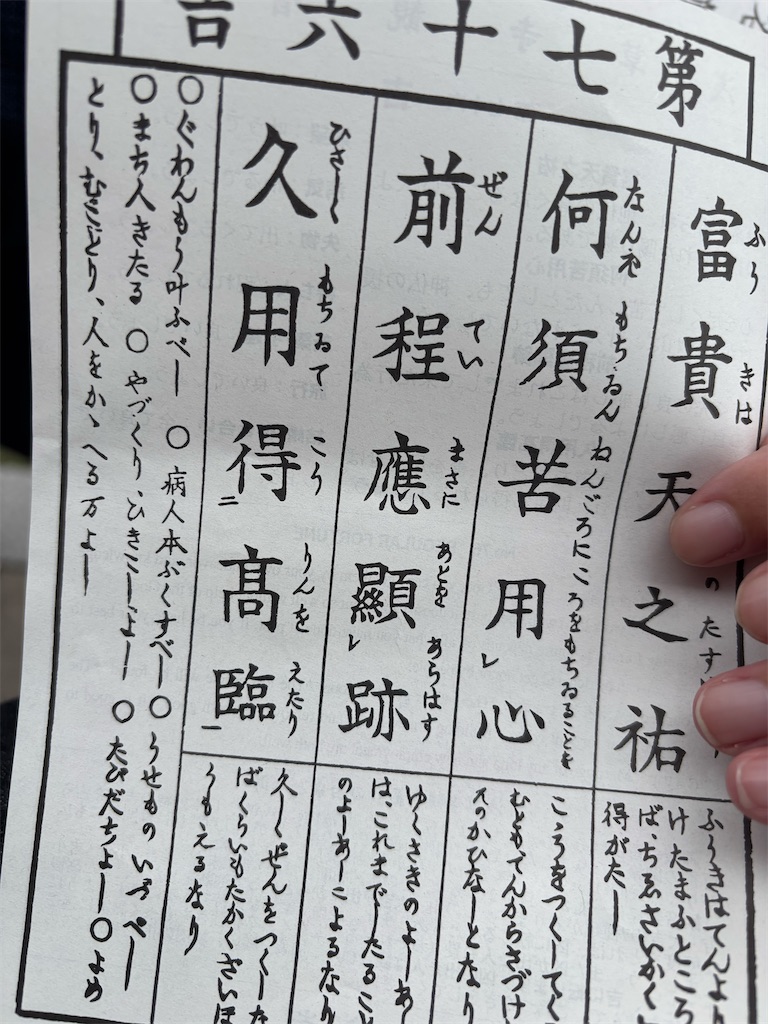 第七十六吉
富貴天之祐
ふうきは のたす
何須苦用心
なんぞもちゐんねんごろにこころをもちゐることを
前程應顯跡
ぜんていまさにあとをあらはす
久用得高臨
ひさしくもちゐてこうりんをえたり
ふうきはてんより
けたまふところ
ば、ちゑさいかく
得がたし
こゝろをつくしてく
むともてんからさづけ
そのかひなしとなり
ゆくさきのよしあし
は、これまでしたること
のよしあしによるなり
久しくぜんをつくした
ばくらいもたかくざいほ
うもえるなり
〇ぐわんもう叶ふべし 〇病人本ぶくすべし〇うせものいづべし
〇まち人きたる 〇やづくり、ひきこしよし 〇たびだちよし〇よめ
とり、むこどり、人をかゝへる万よし